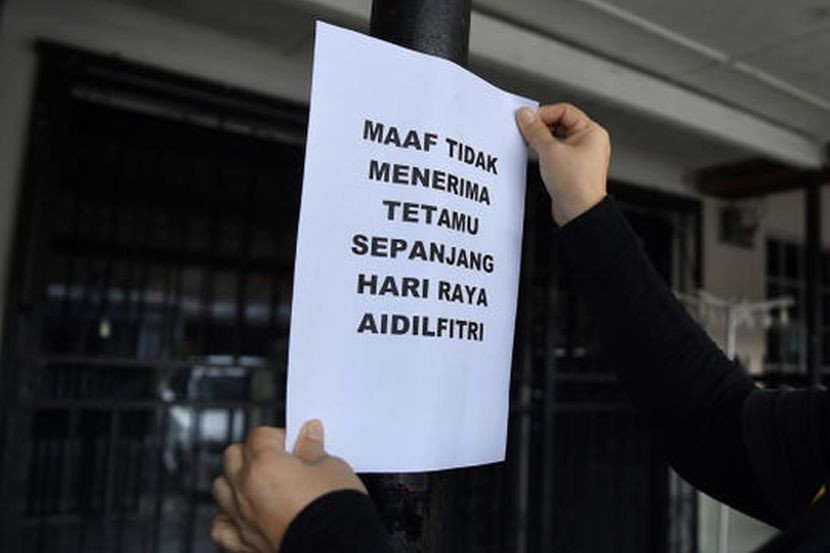 MAAF TIDAK
MENERIMA
TETAMU
SEPANJANG
HARI RAYA
AIDILFITRI